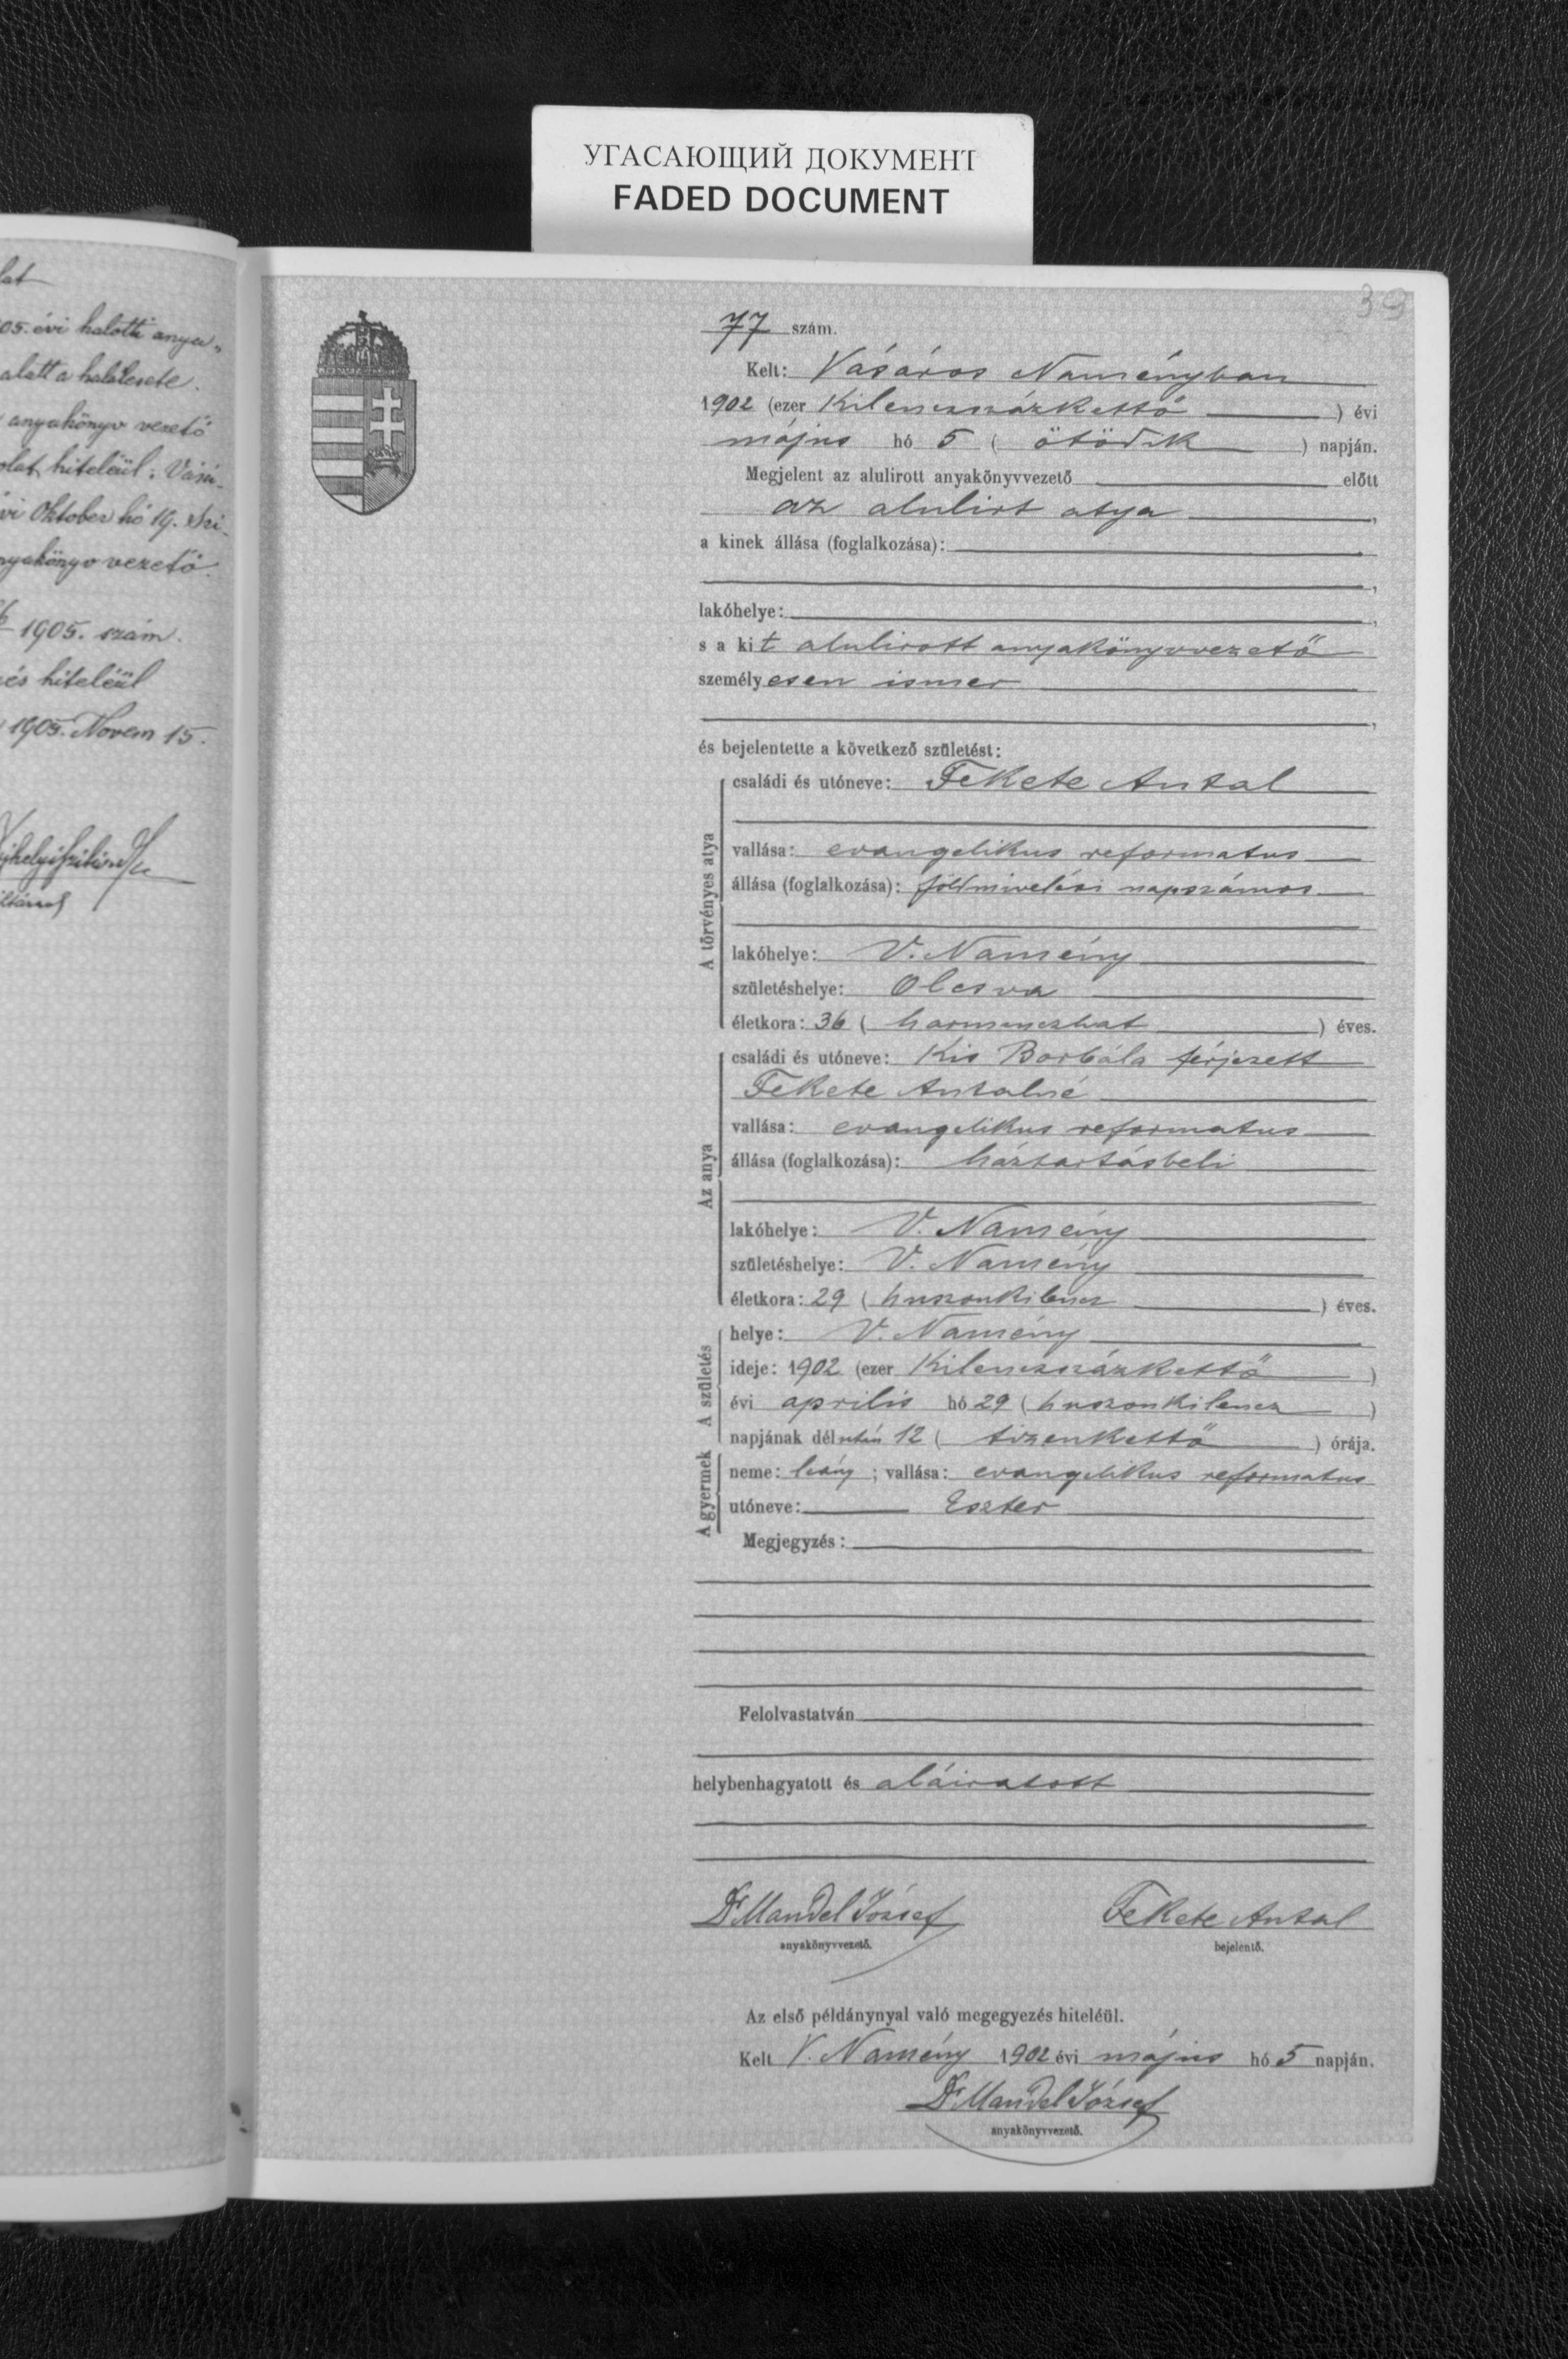 УГАСАЮЩИЙ ДОКУМЕНТ
FADED DOCUMENT
39
lat
05. évi halotti anya„
alatt a halálesete.
anyakönyv vezető
olat hiteléül: Vásá-
vi Oktober hó 19. Szi-
nyakönyv vezető.
1905. szám.
és hiteléül
1905. Novem 15.
77 szám.
Kelt: Vásáros Naményban
1902 (ezer kilenczszázkettő ) évi
május hó 5 ( ötödik ) napján.
Megjelent az alulirott anyakönyvvezető előtt
az alulirt atya ,
a kinek állása (foglalkozása):
,
lakóhelye: ,
s a kit alulirott anyakönyvvezető
személyesen ismer
,
és bejelentette a következő születést:
A törvényes atya
családi és utóneve: Fekete Antal
vallása: evangelikus reformatus
állása (foglalkozása): földmivelési napszámos
lakóhelye: V. Namény
születéshelye: Olcsva
életkora: 36 ( harminczhat ) éves.
Az anya
családi és utóneve: Kis Borbála férjezett
Fekete Antalné
vallása: evangelikus reformatus
állása (foglalkozása): háztartásbeli
lakóhelye: V. Namény
születéshelye: V. Namény
életkora: 29 ( huszonkilencz ) éves.
A születés
helye: V. Namény
ideje: 1902 (ezer kilenczszázkettő )
évi április hó 29 ( huszonkilencz )
napjának délután 12 ( tizenkettő ) órája.
A gyermek
neme: leány ; vallása: evangelikus reformatus
utóneve: Eszter
Megjegyzés:
Felolvastatván
helybenhagyatott és aláiratott
Dr Mandel József Fekete Antal
anyakönyvvezető. bejelentő.
Az első példánynyal való megegyezés hiteléül.
Kelt V. Namény 1902 évi május hó 5 napján.
Dr Mandel József
anyakönyvvezető.